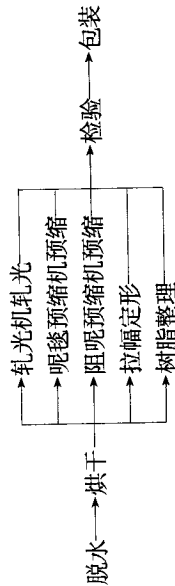 脱水
烘干
轧光机轧光
呢毯预缩机预缩
阻呢预缩机预缩
拉幅定形
树脂整理
检验
包装